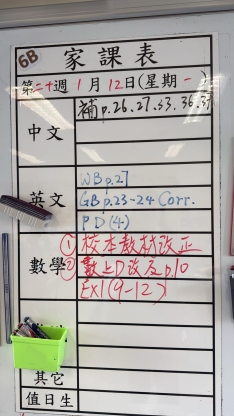 6B
家課表
第二十週 1月12日(星期一)
中文 補p.26.27.33.36.37
英文 WB p.27
GB p.23-24 Corr.
PD(4)
數學 ① 校本教材改正
② 數上D改及p.10
EX1(9-12)
其它
值日生